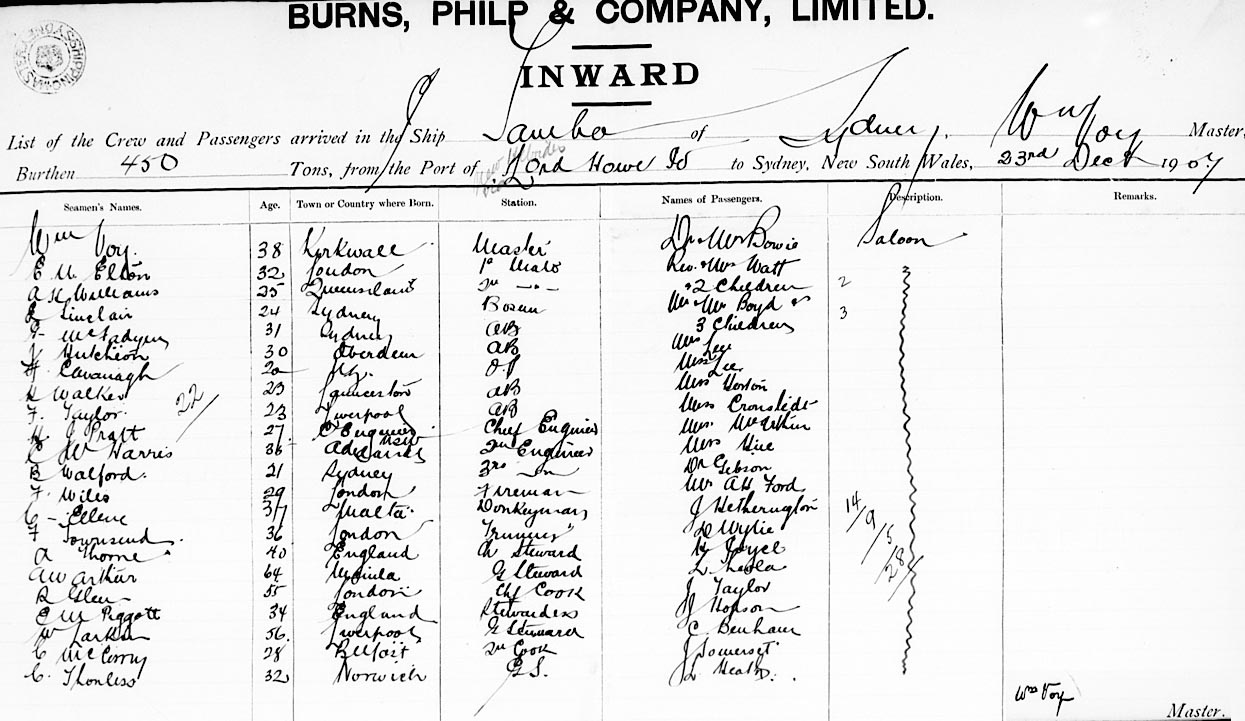 BURNS, PHILP & COMPANY, LIMITED.
INWARD
List of the Crew and Passengers arrived in the Ship Tambo of Sydney, Wm Voy Master,
Burthen 450 Tons, from the Port of New Hebrides via Lord Howe Id to Sydney, New South Wales, 23rd Dect 1907
Seamen's Names. Age. Town or Country where Born. Station. Names of Passengers. Description. Remarks.
Wm Voy. 38 Kirkwall Master Dr & Mrs Bowie Saloon
E M Elton 32 London 1st Mate Rev. & Mrs Watt
A H Williams 25 Queensland 2nd -"- & 2 Children 2
Sinclair 24 Sydney Bosun Mr & Mrs Boyd &
McFadyen 31 Sydney AB 3 Children 3
Hutchion 30 Aberdeen AB Mrs Lee
Cavanagh 20 OS Miss Lee
Walker 23 Launceston AB Miss Horton
F. Taylor 23 Liverpool AB Miss Cronstedt
H J Pratt 27 Chief Engineer Miss
W Harris 36 Adelaide 2nd Engineer Miss
B Walford. 21 Sydney 3rd -"- Dr Gibson
F. Wiles 29 London Fireman Mr AH Ford
C 37 Malta Donkeyman J Hetherington
F Townsend. 36 London Trimmer D Wylie
A Thorne 40 England Ch Steward Joyce
AW Arthur 64 G Steward
R Glen 55 London Chf Cook J Taylor
E M Piggott 34 England Stewardess J Hopson
W Larkin 56. Liverpool G Steward C. Benham
C McCorry 28 Belfast 2nd Cook J Somerset
C. Thonless 32 Norwich G.S. Heath.
22/
14/9/15
/28/
Wm Voy
Master.